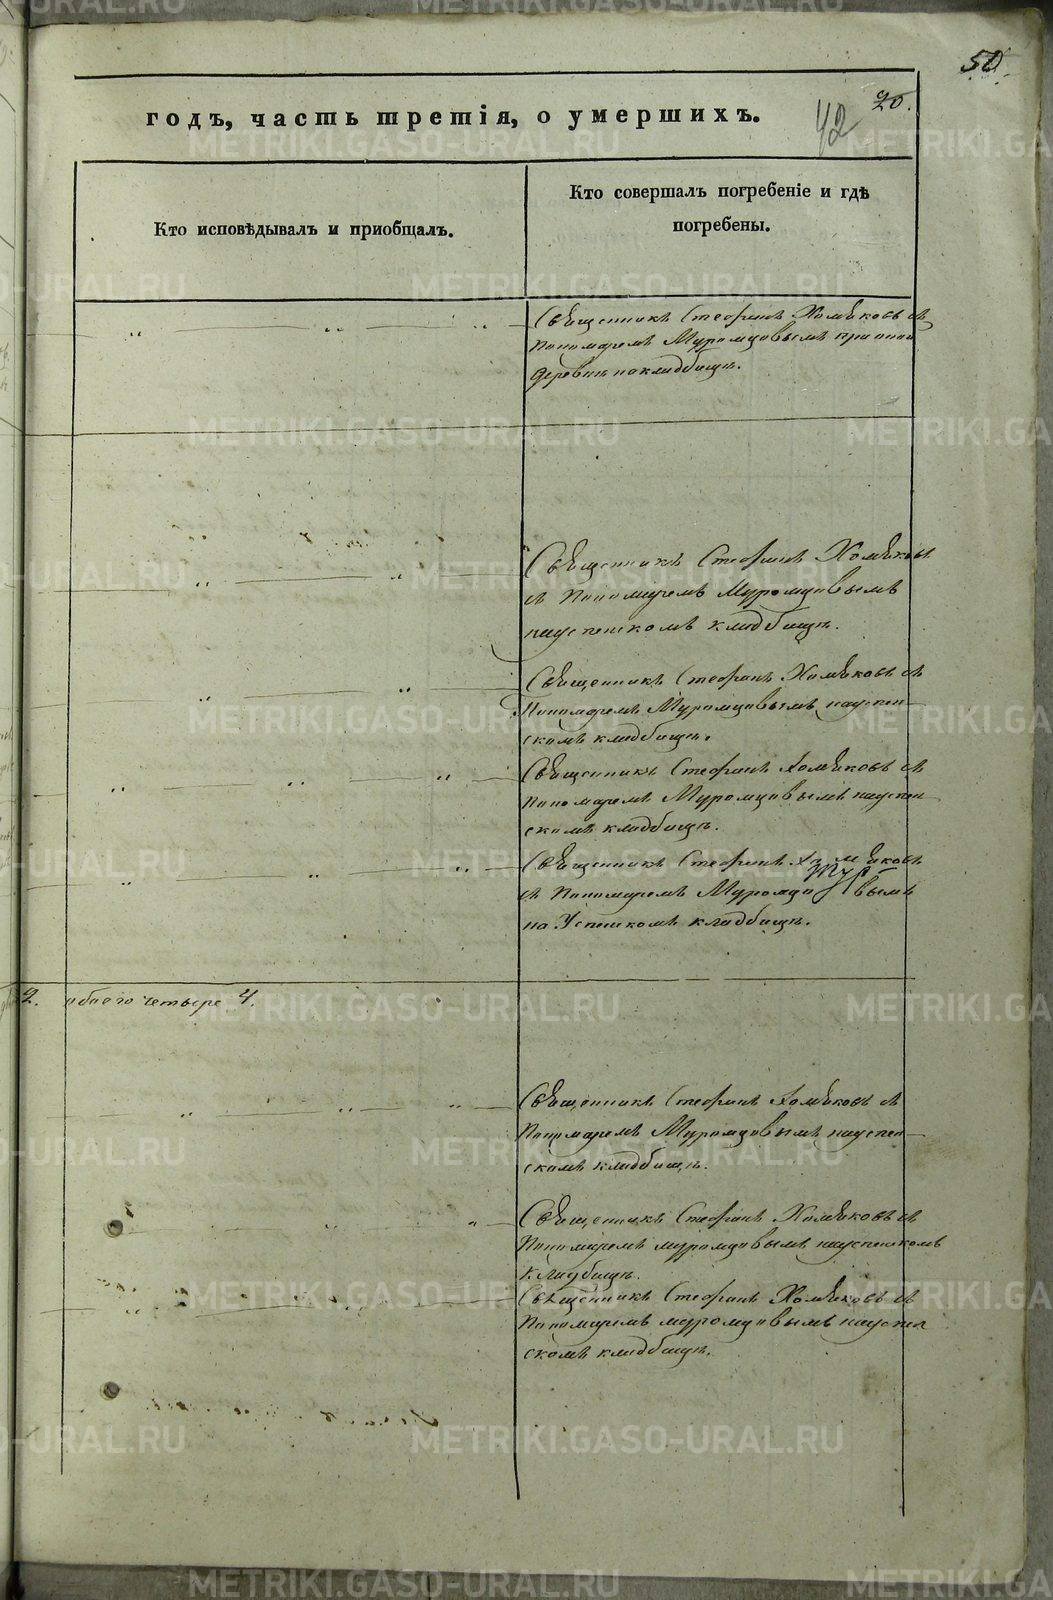 50
20.
42
годъ, часть третія, о умершихъ.
Кто исповѣдывалъ и приобщалъ.
Кто совершалъ погребеніе и гдѣ
погребены.
Священникъ Стефанъ Хомяковъ съ
Пономаремъ Муромцовымъ при оной
деревнѣ на кладбищѣ.
Священникъ Стефанъ Хомяковъ
съ Пономаремъ Муромцовымъ
на успенскомъ кладбищѣ.
Священникъ Стефанъ Хомяковъ съ
Пономаремъ Муромцовымъ на успен-
скомъ кладбищѣ.
Священникъ Стефанъ Хомяковъ съ
Пономаремъ Муромцовымъ на успен
скомъ кладбищѣ.
Священникъ Стефанъ Хомяковъ
съ Пономаремъ Муромцовымъ
на Успенскомъ кладбищѣ.
2. обоего четыре 4.
Священникъ Стефанъ Хомяковъ съ
Пономаремъ Муромцовымъ на успен-
скомъ кладбищѣ.
Священникъ Стефанъ Хомяковъ съ
Пономаремъ муромцовымъ на успенскомъ
кладбищѣ.
Священникъ Стефанъ Хомяковъ съ
Пономаремъ муромцовымъ на успен
скомъ кладбищѣ.
METRIKI.GASO-URAL.RU